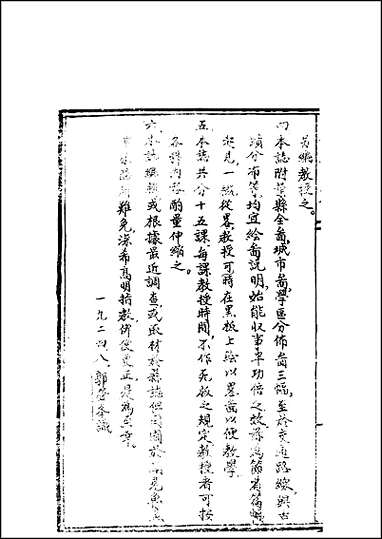 另編教授之。
四本誌附營縣全啚,城市啚,學區分佈啚三幅,至於交通路線,與古
蹟分布等,均宜繪啚説明,始能收事半功倍之效,茲爲節省篇幅
起見,一概從畧,教授可時在黑板上繪以畧啚以便教學。
五本誌共分十五課,每課教授時間,不作死板之規定教授者可按
各課内容酌量伸縮之。
六本誌編輯或根據最近調查,或取材於縣誌但
難免深希高明指教,俾便更正,是爲至幸。
一九二四八,郭